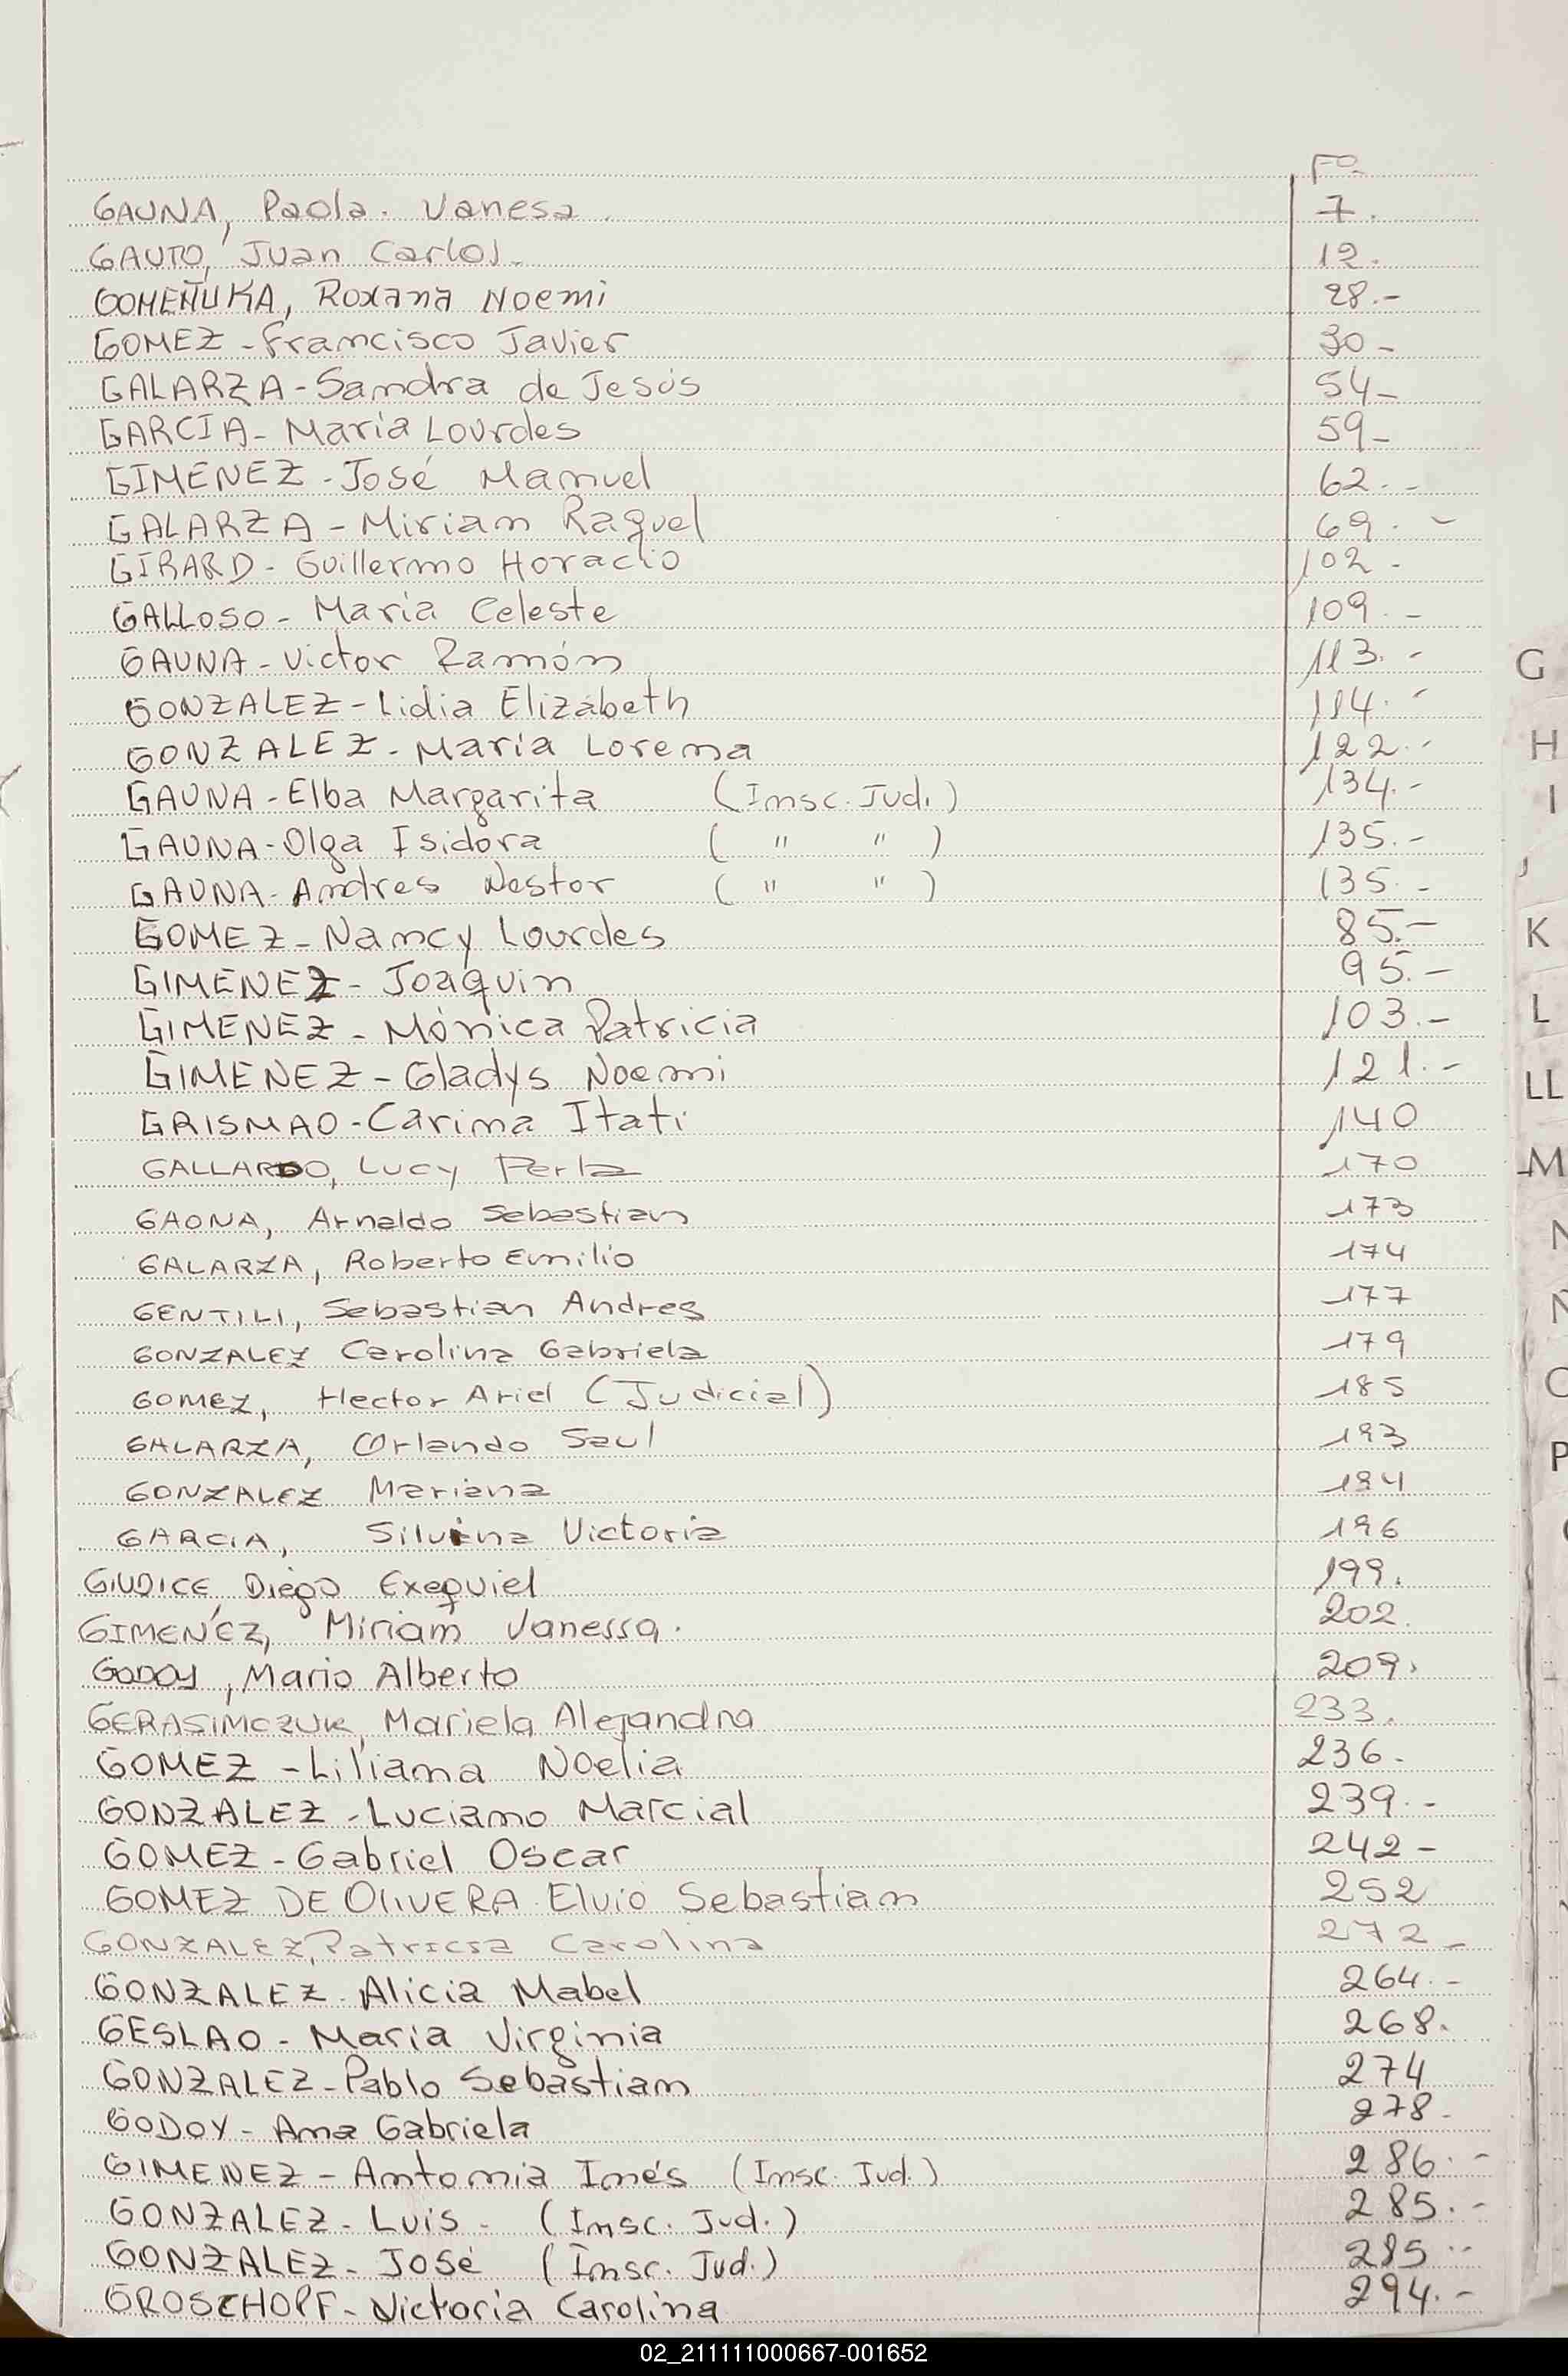 Fº
GAUNA, Paola. Vanesa. 7.
GAUTO, Juan Carlos. 12.
GOMEÑUKA, Roxana Noemi 28.-
GOMEZ - Francisco Javier 30-
GALARZA - Sandra de Jesús 54-
GARCIA - María Lourdes 59-
GIMENEZ - José Manuel 62.-
GALARZA - Miriam Raquel 69.-
GIRARD - Guillermo Horacio 102-
GALLOSO - María Celeste 109.-
GAUNA - Victor Ramón 113.-
GONZALEZ - Lidia Elizabeth 114.-
GONZALEZ - María Lorena 122.-
GAUNA - Elba Margarita (Insc. Jud.) 134.-
GAUNA - Olga Isidora ( " " ) 135.-
GAUNA - Andres Nestor ( " " ) 135.-
GOMEZ - Nancy Lourdes 85.-
GIMENEZ - Joaquin 95.-
GIMENEZ - Mónica Patricia 103.-
GIMENEZ - Gladys Noemi 121.-
GRISMAO - Carina Itati 140
GALLARDO, Lucy Perla 170
GAONA, Arnaldo Sebastian 173
GALARZA, Roberto Emilio 174
GENTILI, Sebastian Andres 177
GONZALEZ Carolina Gabriela 179
GOMEZ, Hector Ariel (Judicial) 185
GALARZA, Orlando Saul 193
GONZALEZ Mariana 194
GARCIA, Silvina Victoria 196
GIUDICE, Diego Exequiel 199.
GIMENEZ, Miriam Vanessa. 202.
GODOY, Mario Alberto 209.
GERASIMCZUK, Mariela Alejandra 233.
GOMEZ - Liliana Noelia 236-
GONZALEZ - Luciano Marcial 239.-
GOMEZ - Gabriel Oscar 242-
GOMEZ DE OLIVERA Elvio Sebastian 252
GONZALEZ, Patricia Carolina 272-
GONZALEZ - Alicia Mabel 264.-
GESLAO - Maria Virginia 268.
GONZALEZ - Pablo Sebastian 274
GODOY - Ana Gabriela 278-
GIMENEZ - Antonia Inés (Insc. Jud.) 286.-
GONZALEZ - Luis - (Insc. Jud.) 285.-
GONZALEZ - José (Insc. Jud.) 285.-
GROSCHOPF - Victoria Carolina 294.-
G
H
I
K
L
LL
M
N
Ñ
O
P
02_211111000667-001652